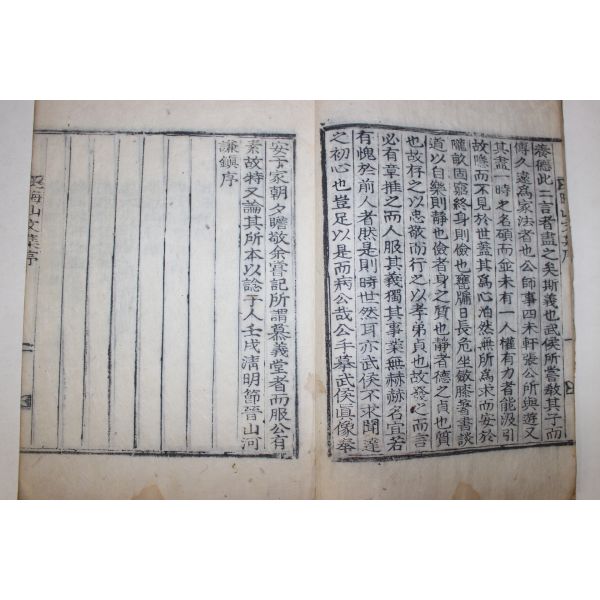 養德此二言者盡之矣斯義也武侯所嘗敎其子而
傳久遠爲家法者也公師事四未軒張公所與遊又
其盡一時之名碩而並未有一人權有力者能汲引
故嘿而不見於世蓋其爲心泊然無所爲求而安於
隴畝固窮終身則儉也甕牖日長危坐斂膝著書談
道以自樂則靜也儉者身之質也靜者德之貞也質
也故存之以忠敬而行之以孝弟貞也故發之而言
必有章推之而人服其義獨其事業無赫赫名宜若
有愧於前人者然是則時世然耳亦武侯不求聞達
之初心也豈足以是而病公哉公手摹武侯眞像舉
安于家朝夕瞻敬余嘗記所謂慕義堂者而服公有
素故特又論其所本以諗于人壬戌淸明節晉山河
謙鎭序
海山文集序